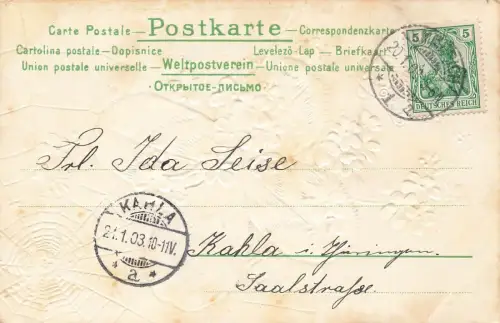 Carte Postale – Postkarte – Correspondenzkarte
Cartolina postale – Dopisnice Levelező-Lap – Briefkaart
Union postale universelle – Weltpostverein – Unione postale universale
ОТКРЫТОЕ-ПИСЬМО
5 5
DEUTSCHES REICH
Frl. Ida Seise
KAHLA
21.1.03.10-11V.
* a *
Kahla i. Thüringen
Saalstraße.